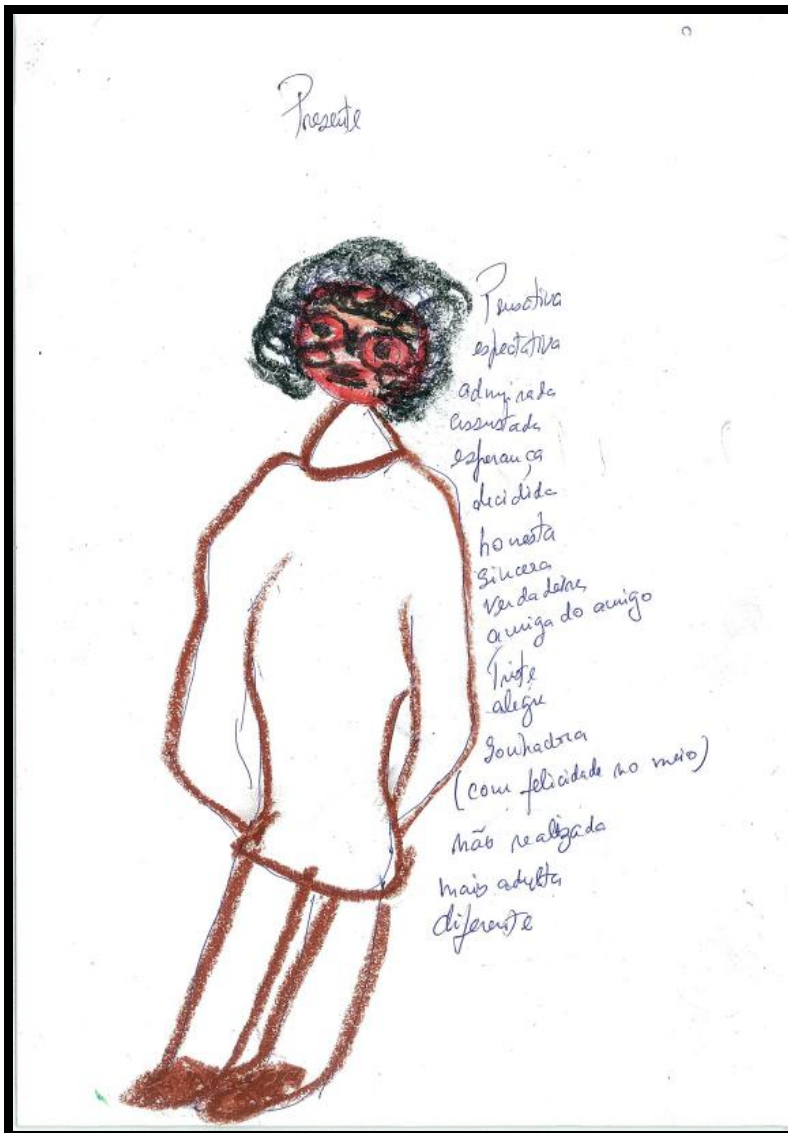 Presente
Pensativa
espectativa
admirada
assustada
esperança
decidida
honesta
sincera
verdadeira
amiga do amigo
Triste
alegre
Sonhadora
(com felicidade no meio)
não realizada
mais adulta
diferente